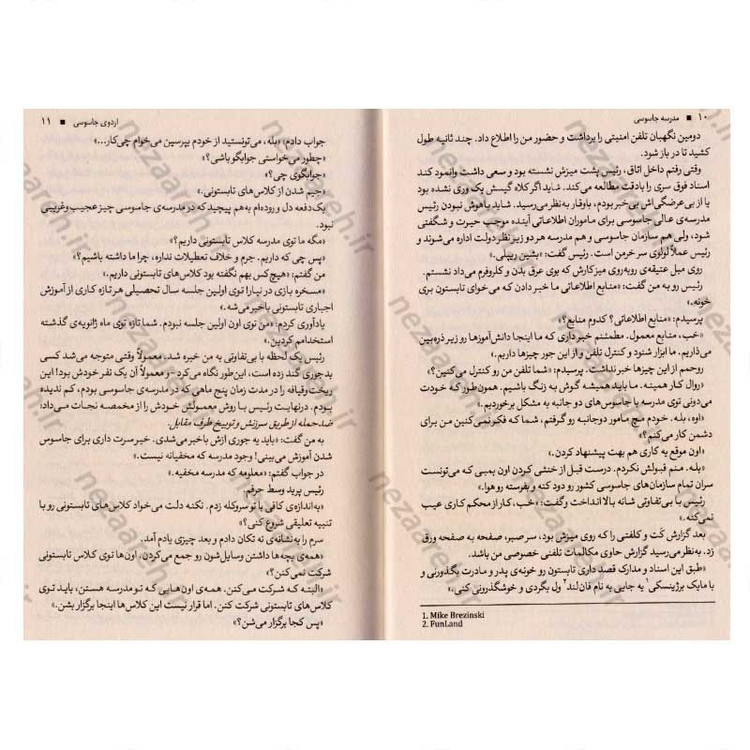 ۱۰ ■ مدرسه جاسوسی
دومین نگهبان تلفن امنیتی را برداشت و حضور من را اطلاع داد. چند ثانیه طول
کشید تا در باز شود.
وقتی رفتم داخل اتاق، رئیس پشت میزش نشسته بود و سعی داشت وانمود کند
اسناد فوق سری را با دقت مطالعه می‌کند. شاید اگر کلاه گیسش یک وری نشده بود
یا از بی‌عرضگی‌اش بی‌خبر بودم، باوقار به نظر می‌رسید. شاید باهوش نبودن رئیس
مدرسه‌ی عالی جاسوسی برای ماموران اطلاعاتی آینده موجب حیرت و شگفتی
شود، ولی هم سازمان جاسوسی و هم مدرسه هر دو زیر نظر دولت اداره می‌شوند و
رئیس عملاً لولوی سر خرمن است. رئیس گفت: «بشین ریپلی.»
روی مبل عتیقه‌ی روبه‌روی میز کارش که بوی عرق بدن و کلروفرم می‌داد نشستم.
رئیس رو به من گفت: «منابع اطلاعاتی ما خبر دادن که می‌خوای تابستون بری
خونه.»
پرسیدم: «منابع اطلاعاتی؟ کدوم منابع؟»
«خب، منابع معمول. مطمئنم خبر داری که ما اینجا دانش‌آموزها رو زیر ذره‌بین
می‌ذاریم. ما ابزار شنود و کنترل تلفن و از این جور چیزها داریم.»
روحم از این چیزها خبر نداشت. پرسیدم: «شما تلفن من رو کنترل می‌کنین؟»
«روال کار همینه. ما باید همیشه گوش به زنگ باشیم. همون‌طور که خودت
می‌دونی توی مدرسه با جاسوس‌های دو جانبه به مشکل برخوردیم.»
«اوه، بله. خودم مچ مامور دوجانبه رو گرفتم، شما که فکر نمی‌کنین من برای
دشمن کار می‌کنم؟»
«اون موقع یه کاری هم بهت پیشنهاد کردن.»
«بله. منم قبولش نکردم. درست قبل از خنثی کردن اون بمبی که می‌تونست
سران تمام سازمان‌های جاسوسی کشور رو دود کنه و بفرسته رو هوا.»
رئیس با بی‌تفاوتی شانه بالا انداخت و گفت: «خب، کار از محکم کاری عیب
نمی‌کنه.»
بعد گزارش کَت و کلفتی را که روی میزش بود، سر صبر، صفحه به صفحه ورق
زد. به نظر می‌رسید گزارش حاوی مکالمات تلفنی خصوصی من باشد.
«طبق این اسناد و مدارک قصد داری تابستون رو خونه‌ی پدر و مادرت بگذرونی و
با مایک برژینسکی۱ یه جایی به نام فان‌لند۲ ول بگردی و خوشگذرونی کنی.»
1. Mike Brezinski
2. FunLand
اردوی جاسوسی ■ ۱۱
جواب دادم: «بله، می‌تونستید از خودم بپرسین می‌خوام چی‌کار...»
«چطور می‌خواستی جوابگو باشی؟»
«جوابگوی چی؟»
«جیم شدن از کلاس‌های تابستونی.»
یک دفعه دل و روده‌ام به‌هم پیچید که در مدرسه‌ی جاسوسی چیز عجیب و غریبی
نبود.
«مگه ما توی مدرسه کلاس تابستونی داریم؟»
«پس چی که داریم. جرم و خلاف تعطیلات نداره، چرا ما داشته باشیم؟»
من گفتم: «هیچ‌کس بهم نگفته بود کلاس‌های تابستونی داریم.»
«مسخره بازی در نیار! توی اولین جلسه سال تحصیلی هر تازه کاری از آموزش
اجباری تابستونی باخبر می‌شه.»
یادآوری کردم: «من توی اون اولین جلسه نبودم. شما تازه توی ماه ژانویه‌ی گذشته
استخدامم کردین.»
رئیس یک لحظه با بی‌تفاوتی به من خیره شد. معمولاً وقتی متوجه می‌شد کسی
بدجوری کند زده است، این‌طور نگاه می‌کرد - و معمولاً آن یک نفر خودش بود! این
ریخت و قیافه را در مدت زمان پنج ماهی که در مدرسه‌ی جاسوسی بودم، کم ندیده
بودم. در نهایت رئیس با روش معمولش خودش را از مخمصه نجات می‌داد؛
ضدحمله از طریق سرزنش و توبیخ طرف مقابل.
به من گفت: «باید یه جوری ازش باخبر می‌شدی. خیر سرت داری برای جاسوس
شدن آموزش می‌بینی! وجود مدرسه که مخفیانه نیست.»
در جواب گفتم: «معلومه که مدرسه مخفیه.»
رئیس پرید وسط حرفم.
«به‌اندازه‌ی کافی با تو سر و کله زدم. نکنه دلت می‌خواد کلاس‌های تابستونی رو با
تنبیه تعلیقی شروع کنی؟»
سرم را به نشانه‌ی نه تکان دادم و بعد چیزی یادم آمد.
«همه‌ی بچه‌ها داشتن وسایل‌شون رو جمع می‌کردن، اون‌ها توی کلاس تابستونی
شرکت نمی‌کنن؟»
«البته که شرکت می‌کنن. همه‌ی اون‌هایی که تو مدرسه هستن، باید توی
کلاس‌های تابستونی شرکت کنن. اما قرار نیست این کلاس‌ها اینجا برگزار بشن.»
«پس کجا برگزار می‌شن؟»
nezaareh.ir